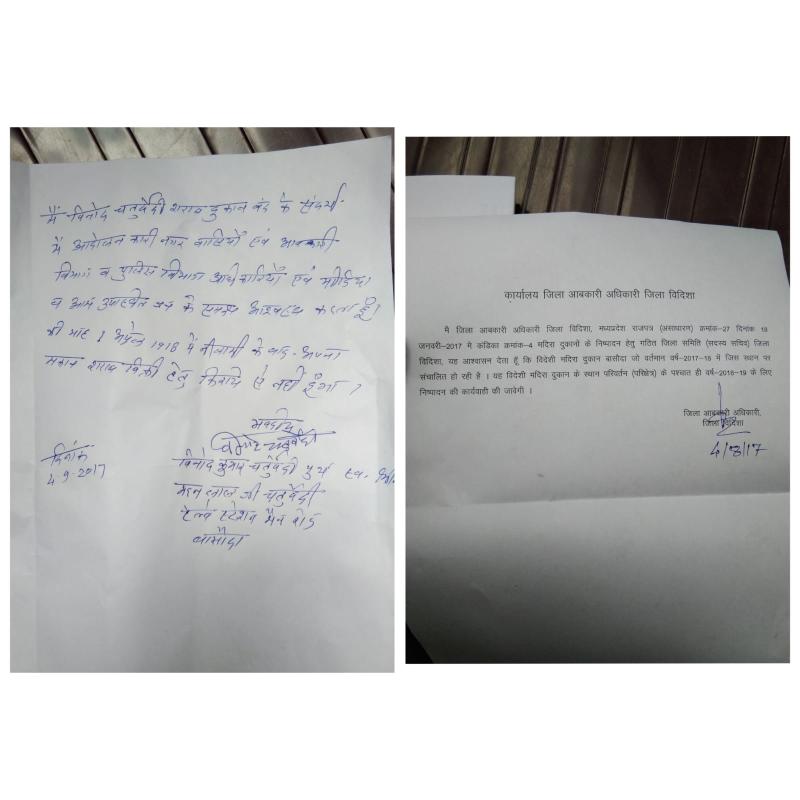 मैं विनोद चतुर्वेदी शराब दुकान बंद के संदर्भ
में आंदोलन कारी नगर वासियों एवं आबकारी
विभाग व पुलिस विभाग अधिकारियों एवं मीडिया
व आम उपस्थित जन के समक्ष आश्वस्त करता हूँ।
की माह 1 अप्रेल 1918 में नीलामी के बाद अपना
मकान शराब बिक्री हेतु किराये से नहीं दूँगा।
भवदीय
दिनांक
4-9-2017
विनोद कुमार चतुर्वेदी पुत्र स्व.
मदन लाल जी चतुर्वेदी
रेल्वे स्टेशन मैन रोड
बासौदा
कार्यालय जिला आबकारी अधिकारी जिला विदिशा
मै जिला आबकारी अधिकारी जिला विदिशा, मध्यप्रदेश राजपत्र (असाधारण) क्रमांक-27 दिनांक 18
जनवरी-2017 मे कंडिका क्रमांक-4 मदिरा दुकानों के निष्पादन हेतु गठित जिला समिति (सदस्य सचिव) जिला
विदिशा, यह आश्वासन देता हूँ कि विदेशी मदिरा दुकान बासौदा जो वर्तमान वर्ष-2017-18 में जिस स्थान पर
संचालित हो रही है । यह विदेशी मदिरा दुकान के स्थान परिवर्तन (परिक्षेत्र) के पश्चात ही वर्ष-2018-19 के लिए
निष्पादन की कार्यवाही की जावेगी ।
जिला आबकारी अधिकारी,
जिला विदिशा
4/9/17